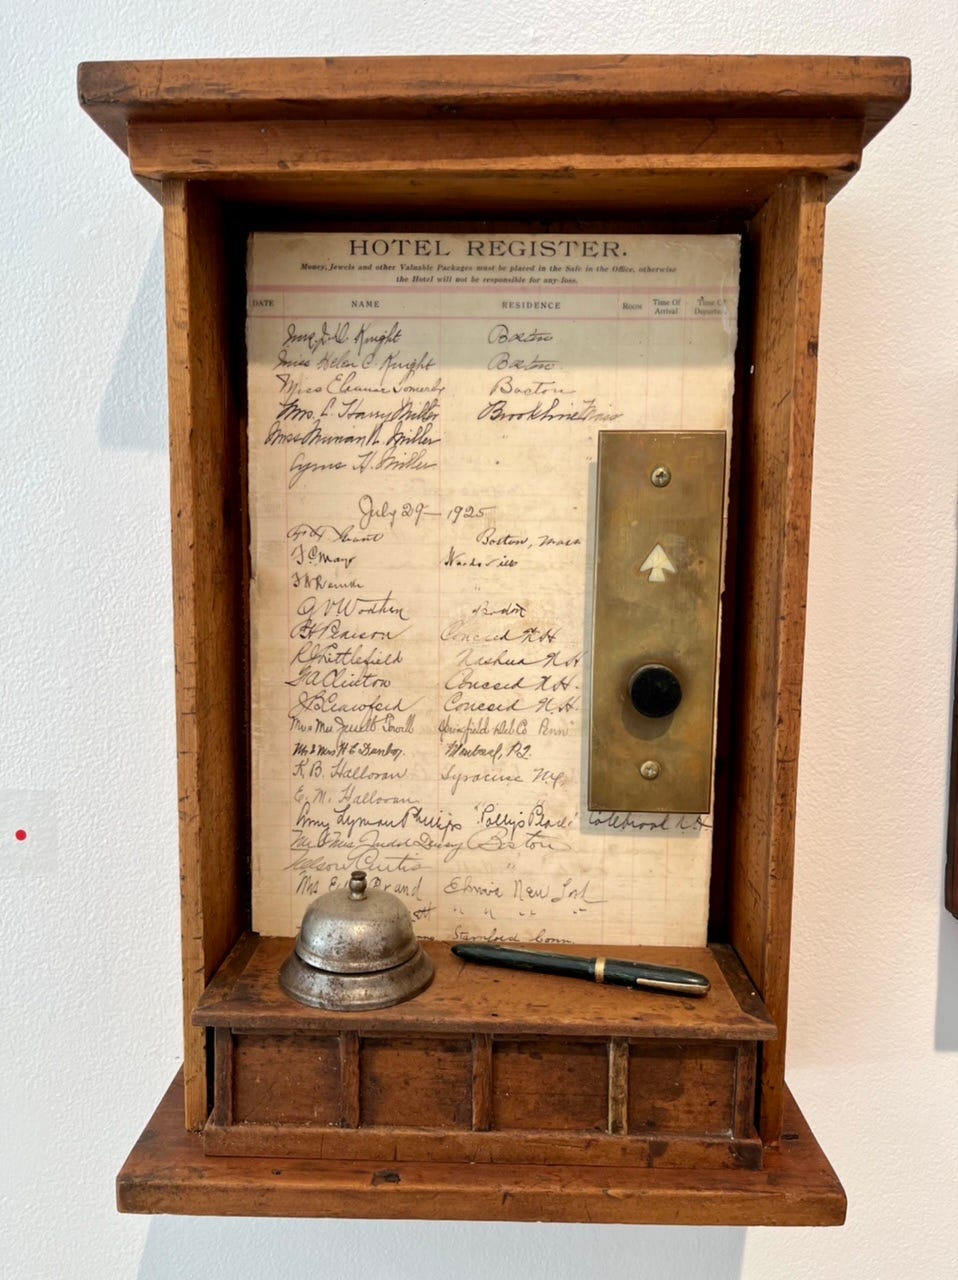 HOTEL REGISTER.
Money, Jewels and other Valuable Packages must be placed in the Safe in the Office, otherwise
the Hotel will not be responsible for any loss.
DATE NAME RESIDENCE ROOM Time Of Arrival Time Of Departure
Knight Boston
Miss Helen C. Knight Boston
Miss Eleanor Somerby Boston
Mrs. L. Harry Miller Brookline Mass
Miss H. Miller "
Cyrus H. Miller " "
July 29 - 1925
Boston, Mass
F C Mayo Nashville
"
Boston
Pearson Concord N H
Littlefield Nashua N H
G A Clinton Concord N.H.
J B Crawford Concord N.H.
Mr & Mrs Powell Springfield Del Co. Penn
Mr & Mrs H E Dunbar R.I.
K. B. Halloran Syracuse N.Y.
E. M. Halloran
Amy Lyman Phillips "Polly's Place" Colebrook N.H.
Mr & Mrs Judd Dewey Boston
Nelson Curtis "
Mrs E Brand Elmira New York
" " " "
Stamford Conn.